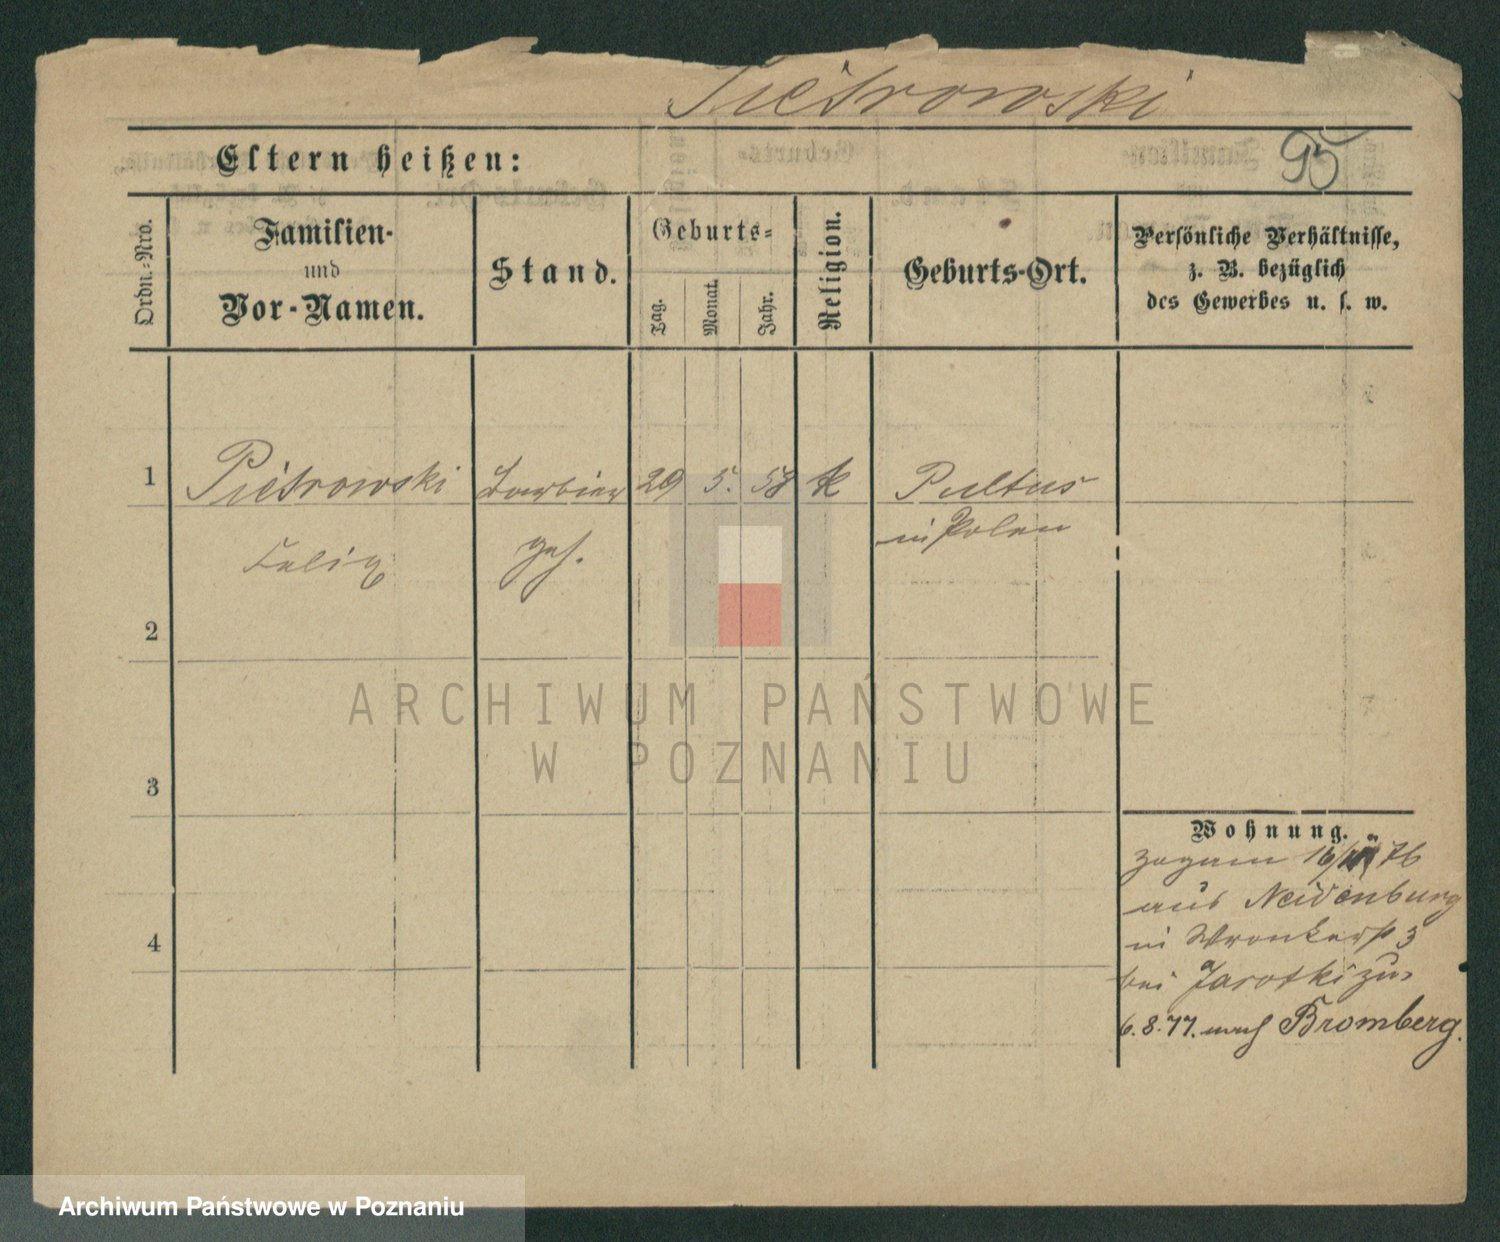 Pietrowski
Eltern heißen:
95
Ordn.-Nro.
Familien-
und
Vor-Namen.
Stand.
Geburts-
Tag.
Monat.
Jahr.
Religion.
Geburts-Ort.
Persönliche Verhältnisse,
z. B. bezüglich
des Gewerbes u. s. w.
1
Pietrowski
Barbier
29
5.
58
k
Pultus
Felix
geh.
in Polen
2
ARCHIWUM PAŃSTWOWE
W POZNANIU
3
Wohnung.
zugezn 16/ 76
aus Neidenburg
in Wronkerst 3
bei Jarotki zu.
4
6.8.77. nach Bromberg.
Archiwum Państwowe w Poznaniu